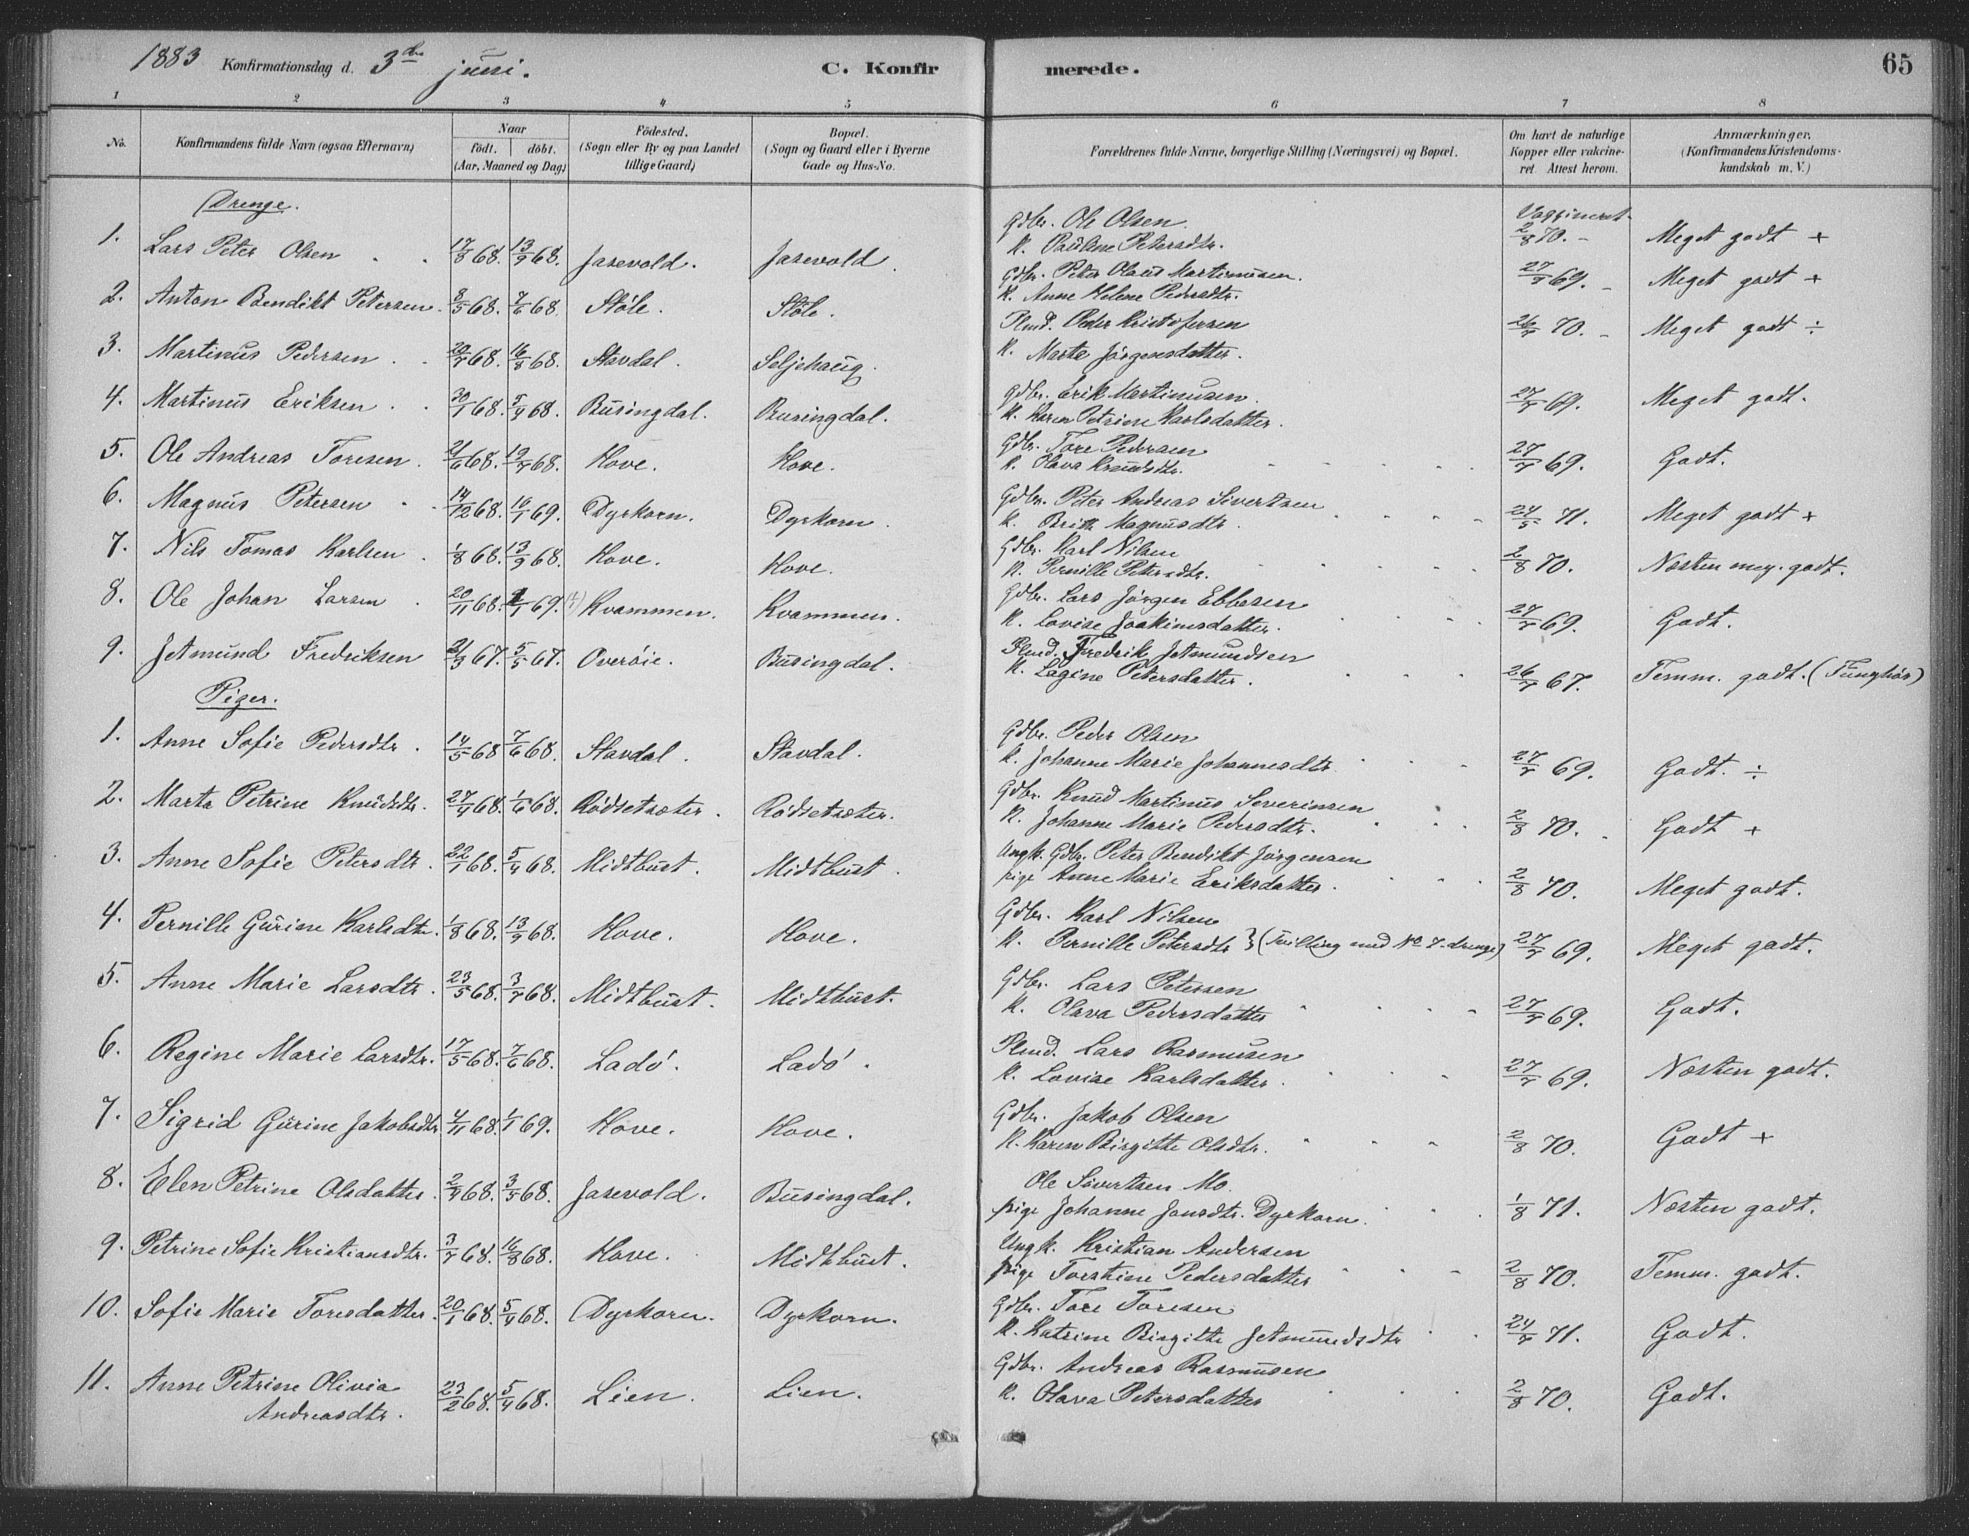 1883 Konfirmationsdag d. 3die juni. C. Konfirmerede. 65
1 2 3 4 5 6 7 8
No. Konfirmandens fulde Navn (ogsaa Efternavn) Naar födt. döbt. (Aar, Maaned og Dag) Födested. (Sogn eller By og paa Landet tillige Gaard) Bopæl. (Sogn og Gaard eller i Byerne Gade og Hus-No. Forældrenes fulde Navne, borgerlige Stilling (Næringsvei) og Bopæl. Om havt de naturlige Kopper eller vakcineret. Attest herom. Anmærkninger. (Konfirmandens Kristendomskundskab m. V.)
Drenge. Vaccineret
1. Lars Peter Olsen 17/8 68. 13/9 68. Jasevold. Jasevold. Gdbr. Ole Olsen K. Pauline Petersdtr. 2/8 70. Meget godt +
2. Anton Bendikt Petersen. 3/5 68. 7/6 68. Støle. Støle. Gdbr. Peter Olaus Martinusen. K. Anne Helene Pedersdtr. 27/7 69. Meget godt +
3. Martinus Pedersen 20/7 68. 16/8 68. Stavdal. Seljehaug. Plmd. Peder Kristofersen K. Marte Jörgensdatter. 26/7 70. Meget godt ÷
4. Martinus Eriksen 30/1 68. 5/4 68. Busingdal. Busingdal. Gdbr. Erik Martinusen. K. Karen Petrine Karlsdatter. 27/7 69. Meget godt.
5. Ole Andreas Toresen. 21/6 68. 19/7 68. Hove. Hove. Gdbr. Tore Pedersen K. Olava Knudsdtr. 27/7 69. Godt.
6. Magnus Petersen 14/12 68. 10/1 69. Dyrkorn. Dyrkorn. Gdbr. Peter Andreas Sivertsen K. Britt Magnusdtr. 24/5 71. Meget godt +
7. Nils Tomas Karlsen. 1/8 68. 13/9 68. Hove. Hove. Gdbr. Karl Nilsen K. Pernille Petersdtr. 2/8 70. Næsten meg. godt.
8. Ole Johan Larsen 20/11 68. 1/1 69. Kvammen. Kvammen. Gdbr. Lars Jörgen Ebbesen K. Lovise Joakimsdatter. 27/7 69. Godt.
9. Jetmund Fredriksen 21/3 67. 5/5 67. Overöie. Busingdal. Plmd. Fredrik Jetmundsen K. Lagine Petersdatter. 26/7 67. Temm. godt. (Tunghör)
Piger.
1. Anne Sofie Pedersdtr. 14/5 68 7/6 68. Stavdal. Stavdal. Gdbr. Peder Olsen K. Johanne Marie Johannesdtr. 27/7 69. Godt. ÷
2. Marta Petrine Knudsdtr. 27/4 68. 1/6 68. Rødsetsæter. Rødsetsæter. Gdbr. Knud Martinus Severinsen K. Johanne Marie Pedersdtr. 2/8 70. Godt +
3. Anne Sofie Petersdtr. 22/1 68. 5/4 68. Midtbust. Midtbust. Ungk. Gdbr. Peter Bendikt Jörgensen pige Anne Marie Eriksdatter. 2/8 70. Meget godt.
4. Pernille Gurine Karlsdtr. 1/8 68. 13/9 68. Hove. Hove. Gdbr. Karl Nilsen K. Pernille Petersdtr } (Tvilling med No 7. drenge) 27/7 69. Meget godt.
5. Anne Marie Larsdtr. 23/5 68. 3/7 68. Midtbust. Midtbust. Gdbr. Lars Petersen K. Olava Pedersdatter 27/7 69. Godt.
6. Regine Marie Larsdtr. 17/5 68. 7/6 68. Ladö. Ladö. Plmd. Lars Rasmusen K. Lovise Karlsdatter. 27/7 69. Næsten godt.
7. Sigrid Gurine Jakobsdtr 4/11 68. 1/1 69. Hove. Hove. Gdbr. Jakob Olsen K. Karen Birgitte Olsdtr. 2/8 70. Godt +
8. Elen Petrine Olsdatter. 2/4 68. 3/5 68. Jasevold. Busingdal. Ole Sivertsen Mo. pige Johanne Jonsdtr. Dyrkorn. 1/8 71. Næsten godt.
9. Petrine Sofie Kristiansdtr. 3/7 68. 16/8 68. Hove. Midtbust. Ungk. Kristian Andersen pige Torstine Pedersdatter 2/8 70. Temm. godt.
10. Sofie Marie Toresdatter 20/1 68. 5/4 68. Dyrkorn. Dyrkorn. Gdbr. Tore Toresen K. Katrine Birgitte Jetmundsdtr 24/7 71. Godt.
11. Anne Petrine Olivia Andreasdtr. 23/2 68. 5/4 68. Lien. Lien. Gdbr. Andreas Rasmusen K. Olava Petersdatter 2/8 70. Godt.